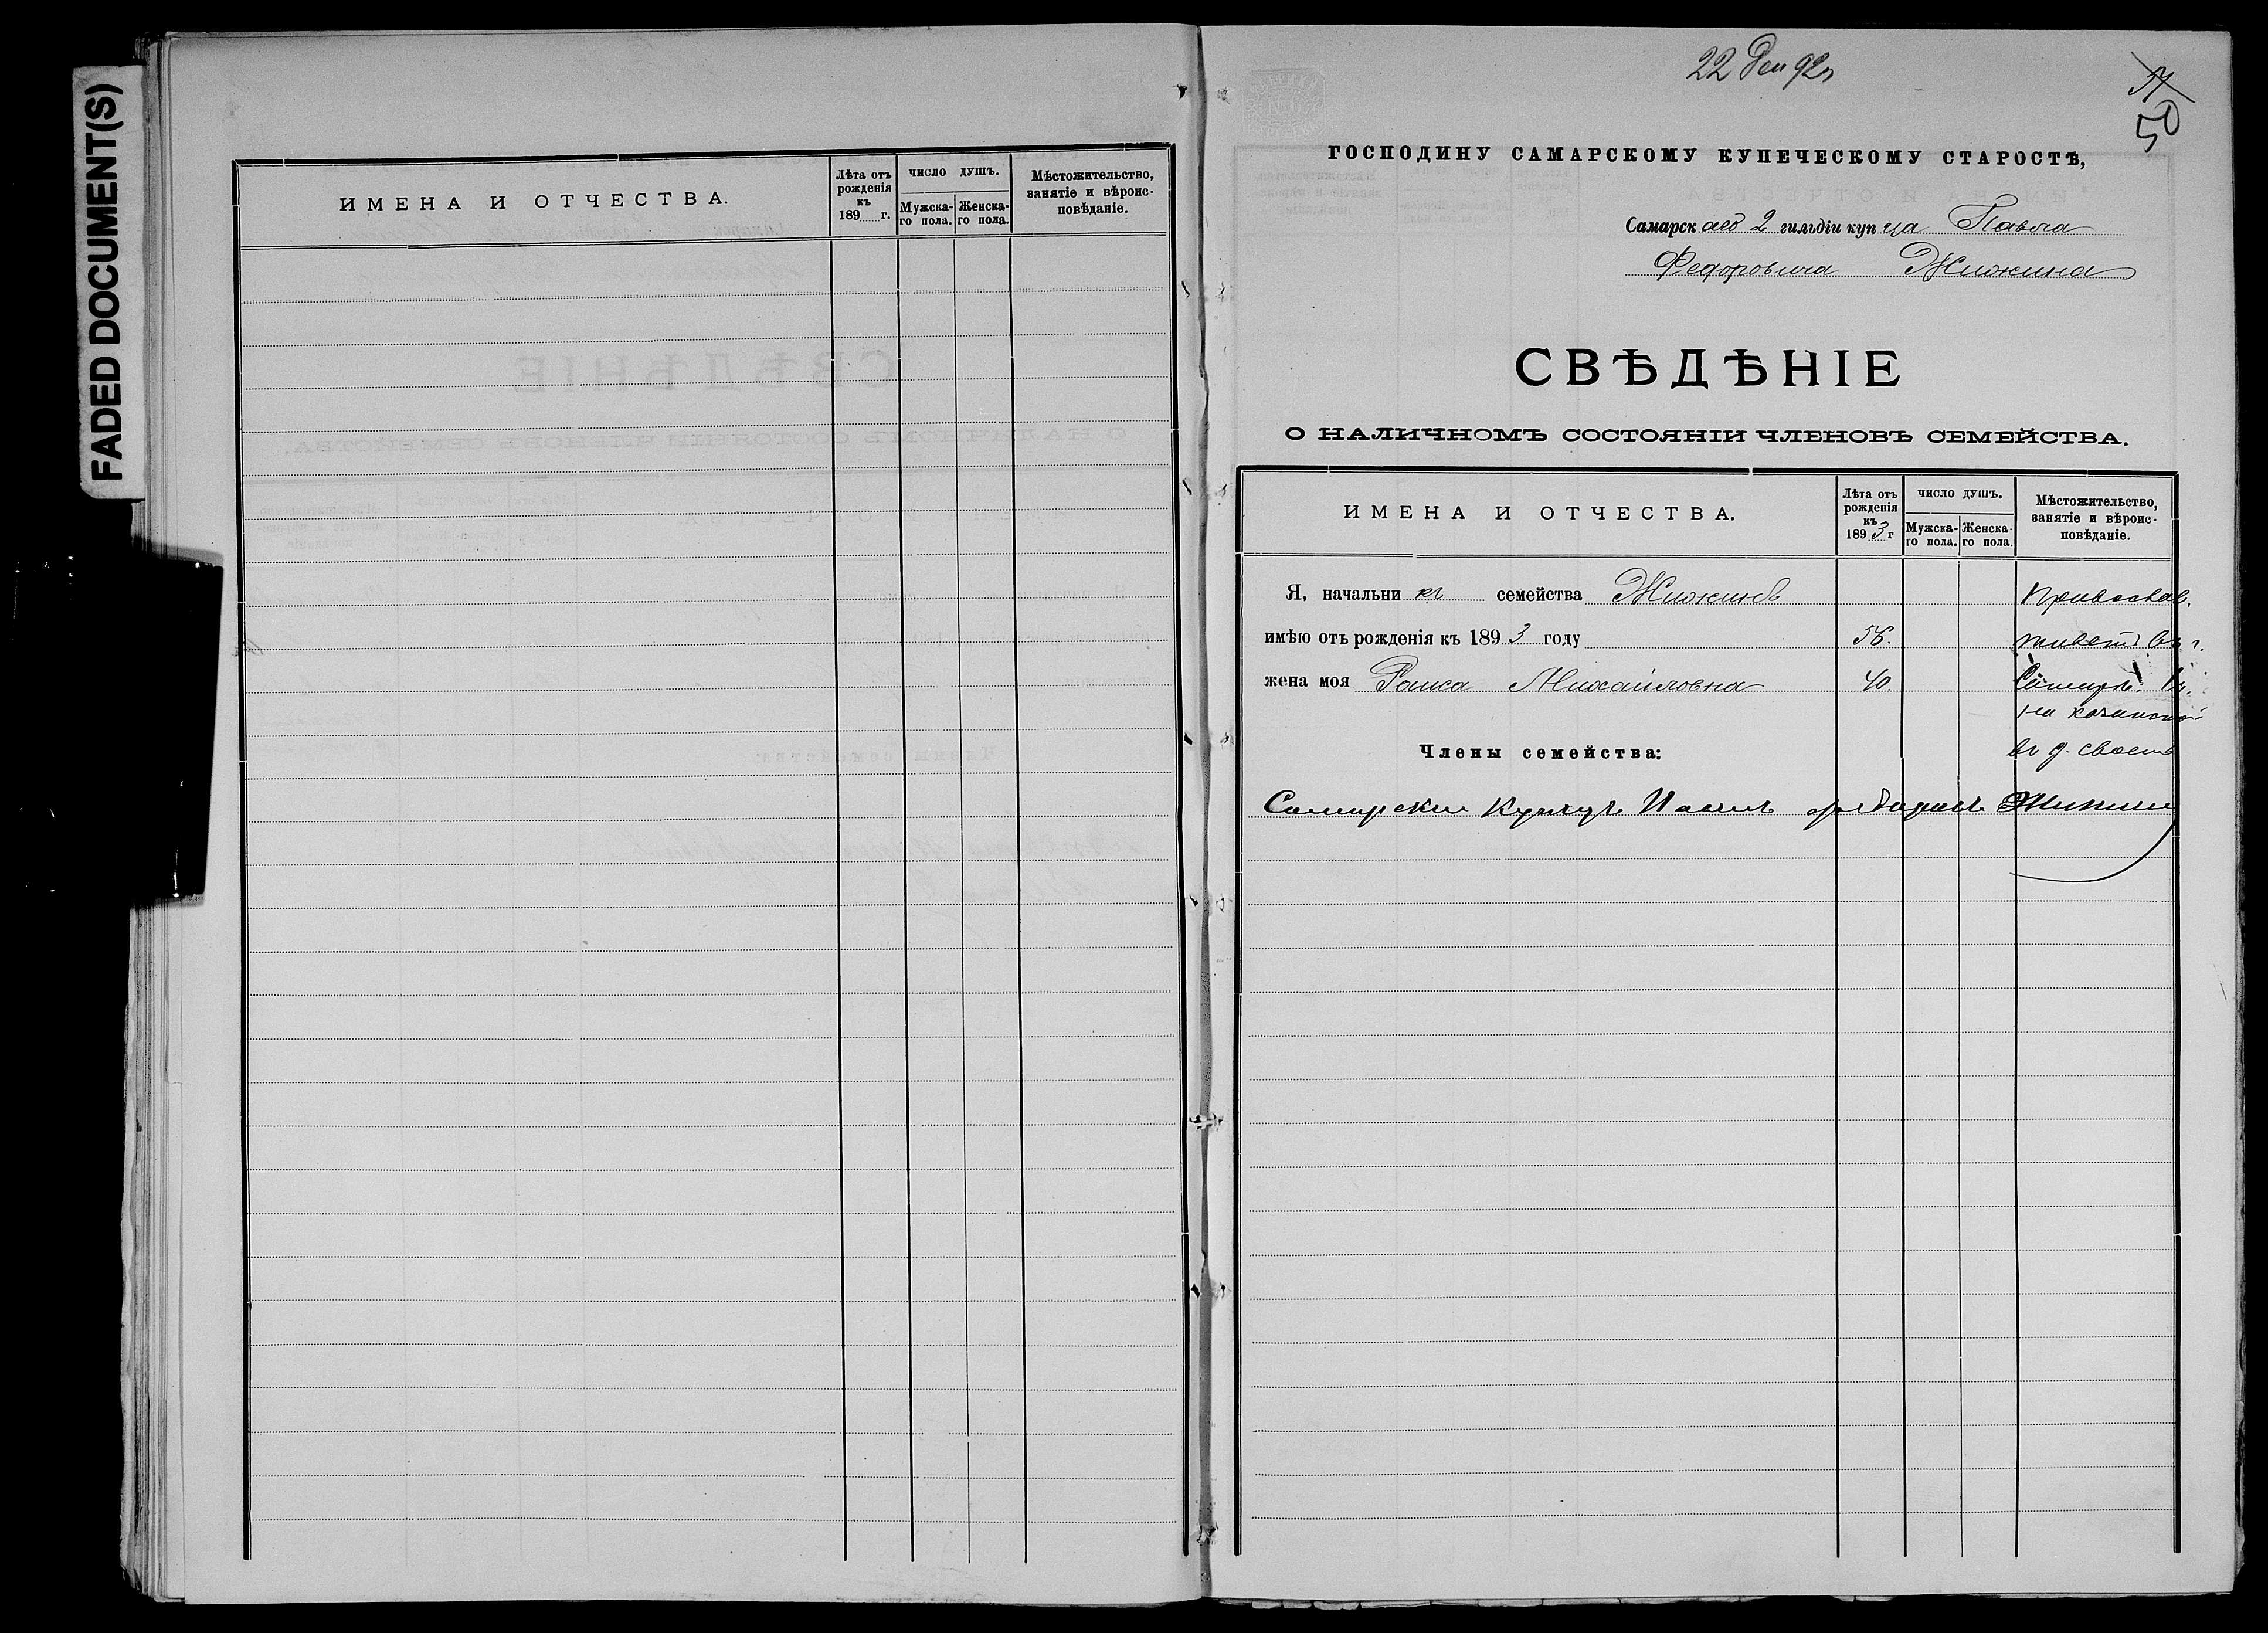 FADED DOCUMENT(S)
ИМЕНА И ОТЧЕСТВА.
Лѣта отъ рожденія къ 189 г.
ЧИСЛО ДУШЪ.
Мужска-го пола.
Женска-го пола.
Мѣстожительство, занятіе и вѣроис-повѣданіе.
22 Дек 92 г
50
ГОСПОДИНУ САМАРСКОМУ КУПЕЧЕСКОМУ СТАРОСТѢ,
Самарскаго 2 гильдіи купца Павла
Федоровича
СВѢДѢНІЕ
О НАЛИЧНОМЪ СОСТОЯНІИ ЧЛЕНОВЪ СЕМЕЙСТВА.
ИМЕНА И ОТЧЕСТВА.
Лѣта отъ
рожденія
къ
1893 г
ЧИСЛО ДУШЪ.
Мужска-го пола.
Женска-го пола.
Мѣстожительство,
занятіе и вѣроис-
повѣданіе.
Я, начальникъ семейства Православ.
имѣю отъ рожденія къ 1893 году 56. живетъ въ г.
жена моя Раиса Михайловна 40. Самарѣ.
на казанской
Члены семейства: въ д. своемъ
Самарски Купецъ Павилъ